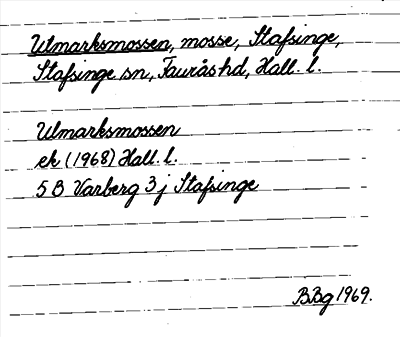 Utmarksmossen, mosse, Stafsinge,
Stafsinge sn, Faurås hd, Hall. l.
Utmarksmossen
ek (1968) Hall. l.
5 B Varberg 3 j Stafsinge
BBg 1969.